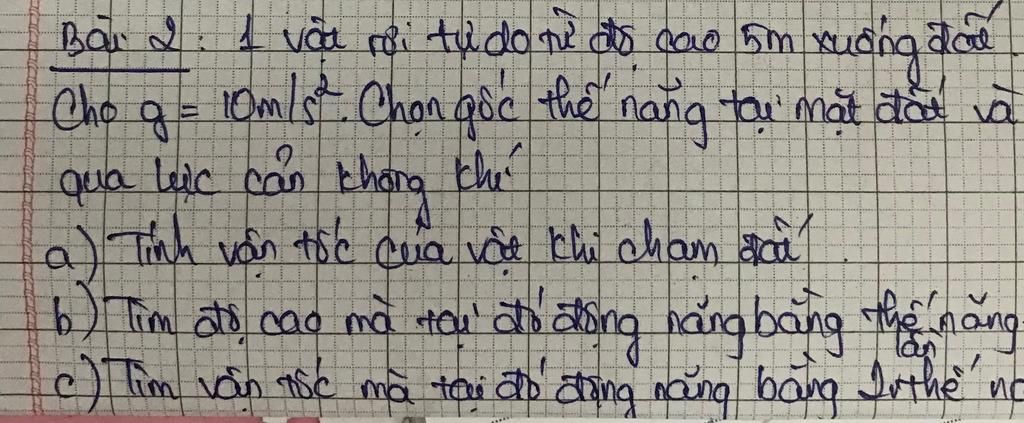 Bài 2: 1 vật rơi tự do từ độ cao 5m xuống đất.
Cho g = 10m/s². Chọn gốc thế năng tại mặt đất và
qua lực cản không khí
a) Tính vận tốc của vật khi chạm đất.
b) Tìm độ cao mà tại đó động năng bằng thế năng
c) Tìm vận tốc mà tại đó động năng bằng 2 lần thế